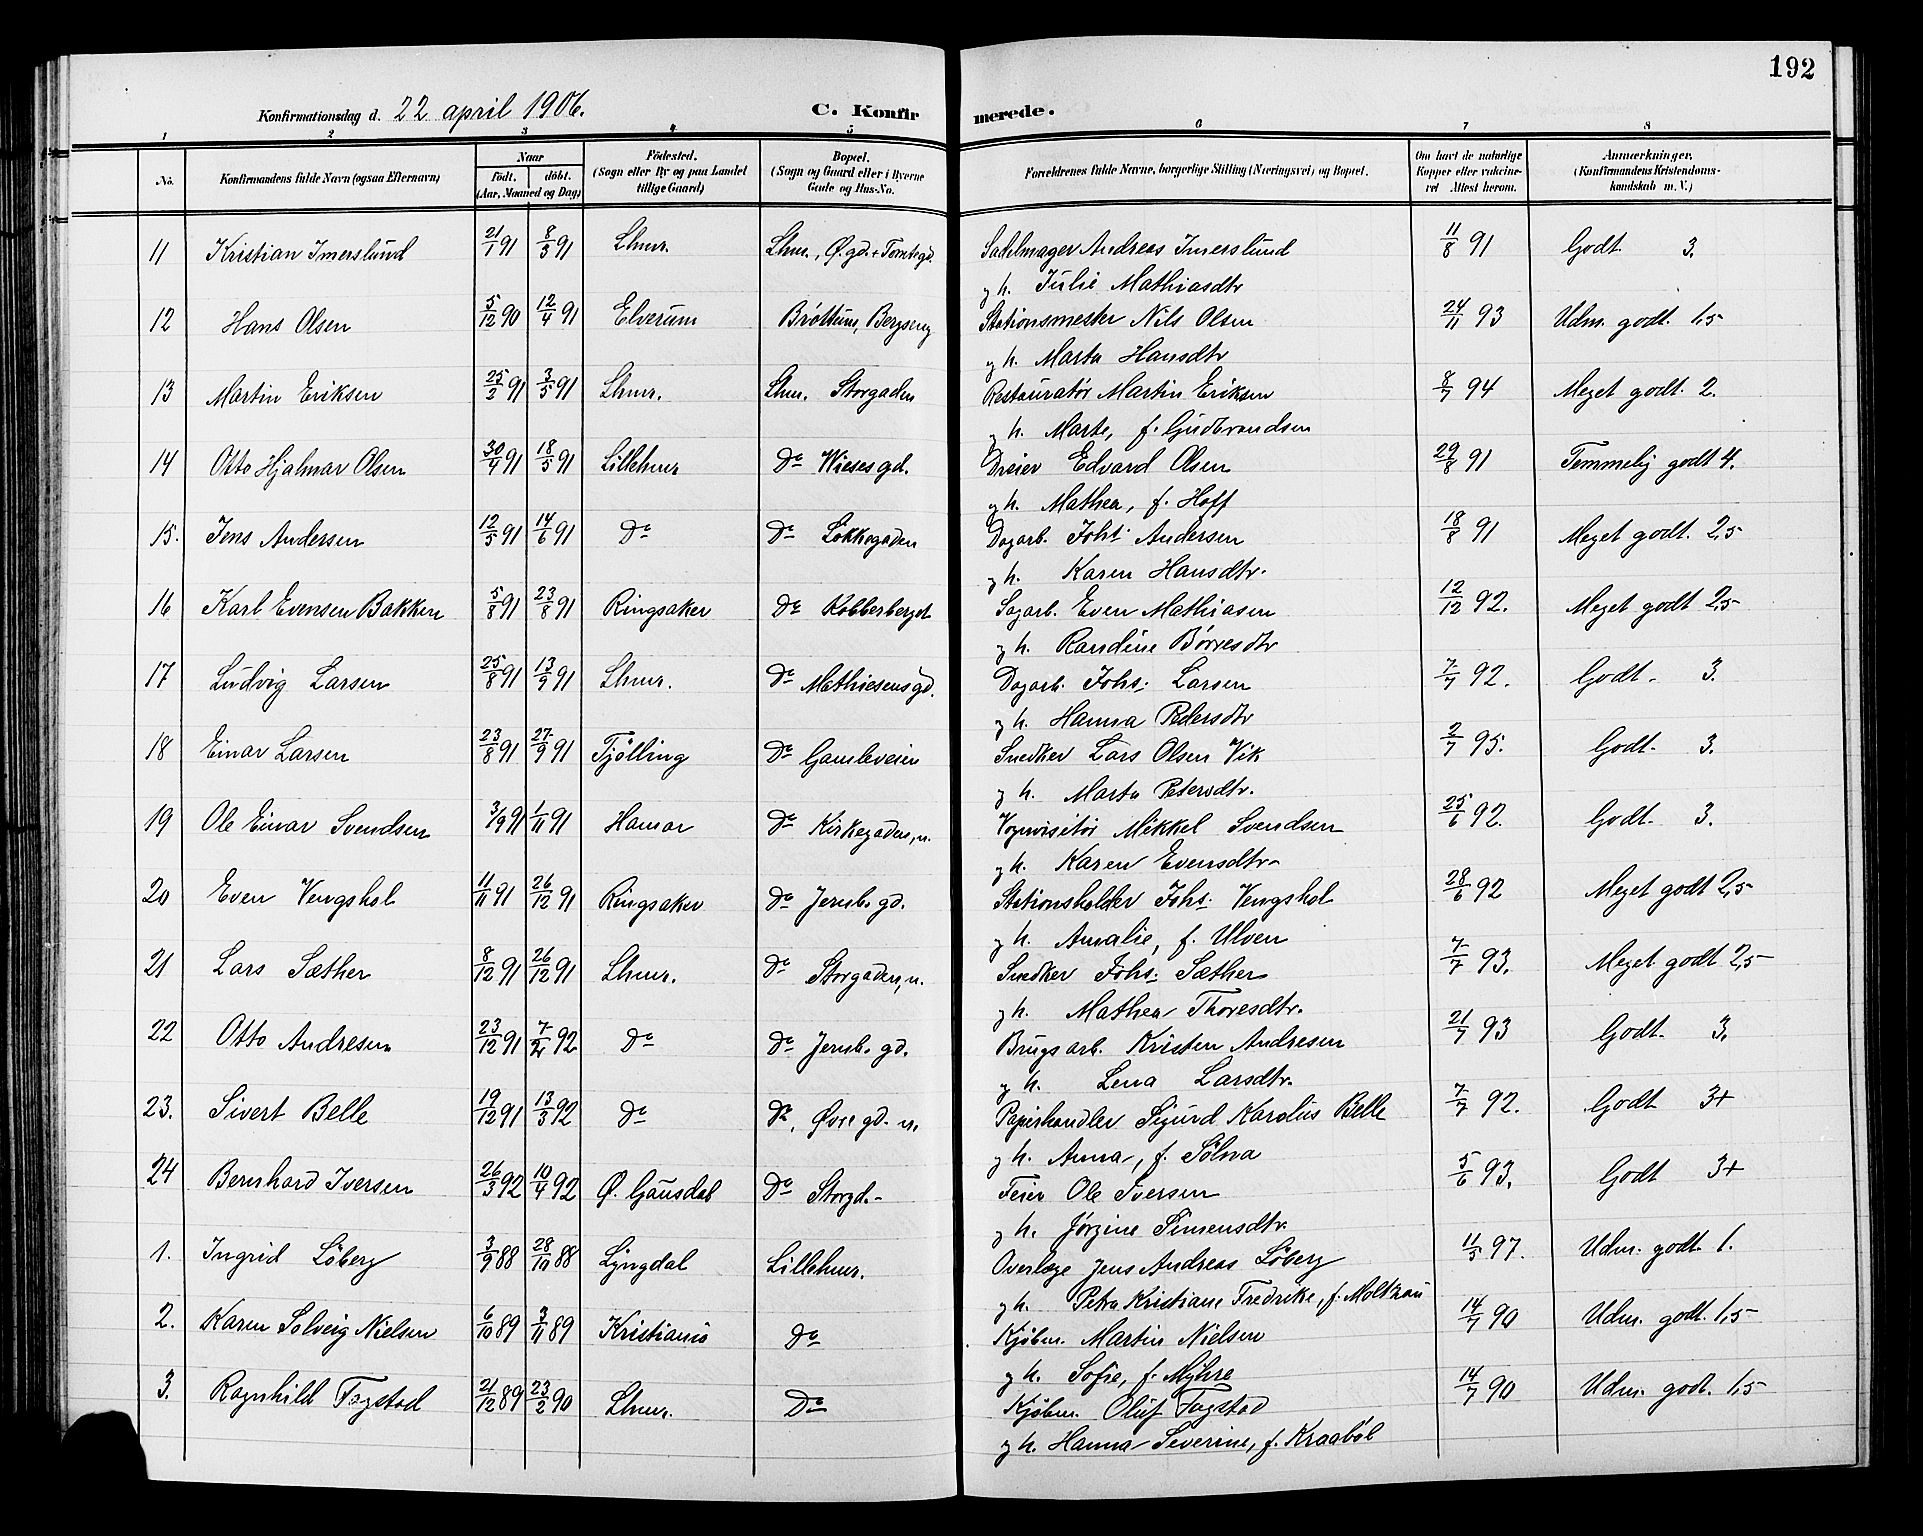 192
Konfirmationsdag d. 22 april 1906. C. Konfir merede.
1 2 3 4 5 6 7 8
No. Konfirmandens fulde Navn (ogsaa Efternavn) Naar født. døbt. (Aar, Maaned og Dag) Fødested. (Sogn eller By og paa Landet tillige Gaard) Bopæl. (Sogn og Gaard eller i Byerne Gade og Hus-No. Forældrenes fulde Navne, borgerlige Stilling (Næringsvei) og Bopæl. Om havt de naturlige Kopper eller vakcineret Attest herom. Anmærkninger. (Konfirmandens Kristendomskundskab m. V.)
11 Kristian Imerslund 21/1 91 8/3 91 Lhmr. Lhm., Ø. gd. + Tomtegd. Sadelmager Andreas Imerslund 11/8 91 Godt 3.
og h. Julie Mathiasdtr
12 Hans Olsen 5/12 90 12/4 91 Elverum Brøttum, Bergseng Stationsmester Nils Olsen 24/11 93 Udm. godt. 1,5
og h. Marta Hansdtr
13 Martin Eriksen 25/2 91 3/5 91 Lhmr. Lhm. Storgaden Restauratør Martin Eriksen 8/7 94 Meget godt. 2.
og h. Marte, f. Gudbrandsen
14 Otto Hjalmar Olsen 30/4 91 18/5 91 Lillehmr. Do Wieses gd. Dreier Edvard Olsen 29/8 91 Temmelig godt 4.
og h. Mathea, f. Hoff
15. Jens Andersen 12/5 91 14/6 91 Do Do Løkkegaden Dagarb. Johs. Andersen 18/8 91 Meget godt. 2,5
og h. Karen Hansdtr.
16 Karl Evensen Bakken 5/8 91 23/8 91 Ringsaker Do Kobberberget Sagarb. Even Mathiasen 12/12 92. Meget godt 2,5
og h. Randine Børresdtr
17 Ludvig Larsen 25/8 91 13/9 91 Lhmr. Do Mathiesens gd. Dagarb. Johs. Larsen 7/7 92. Godt. 3.
og h. Hanna Pedersdtr
18 Einar Larsen 23/8 91 27/9 91 Tjølling Do Gamleveien Snedker Lars Olsen Vik 2/7 95. Godt. 3.
og h. Marta Petersdtr.
19 Ole Einar Svendsen 3/9 91 1/11 91 Hamar Do Kirkegaden, n. Vognvisitør Mikkel Svendsen 25/6 92. Godt. 3.
og h. Karen Evensdtr.
20 Even Vengshol 11/11 91 26/12 91 Ringsaker Do Jernb. gd. Stationsholder Johs. Vengshol 28/6 92 Meget godt 2,5
og h. Amalie, f. Ulven
21 Lars Sæther 8/12 91 26/12 91 Lhmr. Do Storgaden, n. Snedker Johs. Sæther 7/7 93. Meget godt 2,5
og h. Mathea Thoresdtr.
22 Otto Andresen 23/12 91 7/2 92 Do Do Jernb. gd. Brugsarb. Kristen Andresen 21/7 93 Godt. 3.
og h. Lena Larsdtr.
23. Sivert Belle 19/12 91 13/3 92 Do Do, Øvre gd. n. Papirhandler Sigurd Karolius Belle 7/7 92. Godt 3+
og h. Anna, f. Sølna
24 Bernhard Iversen 26/3 92 10/4 92 Ø. Gausdal Do Storgd. Feier Ole Iversen 5/6 93. Godt 3+
og h. Jørgine Simensdtr.
1. Ingrid Løberg 3/9 88 28/10 88 Lyngdal Lillehmr. Overlæge Jens Andreas Løberg 11/5 97. Udm. godt. 1.
og h. Petra Kristiane Fredrike, f. Moltzau
2. Karen Solveig Nielsen 6/10 89 3/11 89 Kristiania Do Kjøbm. Martin Nielsen 14/7 90 Udm. godt. 1,5
og h. Sofie, f. Myhre
3. Ragnhild Fagstad 21/12 89 23/2 90 Lhmr. Do Kjøbm. Oluf Fagstad 14/7 90 Udm. godt. 1,5
og h. Hanna Severine, f. Kraabøl